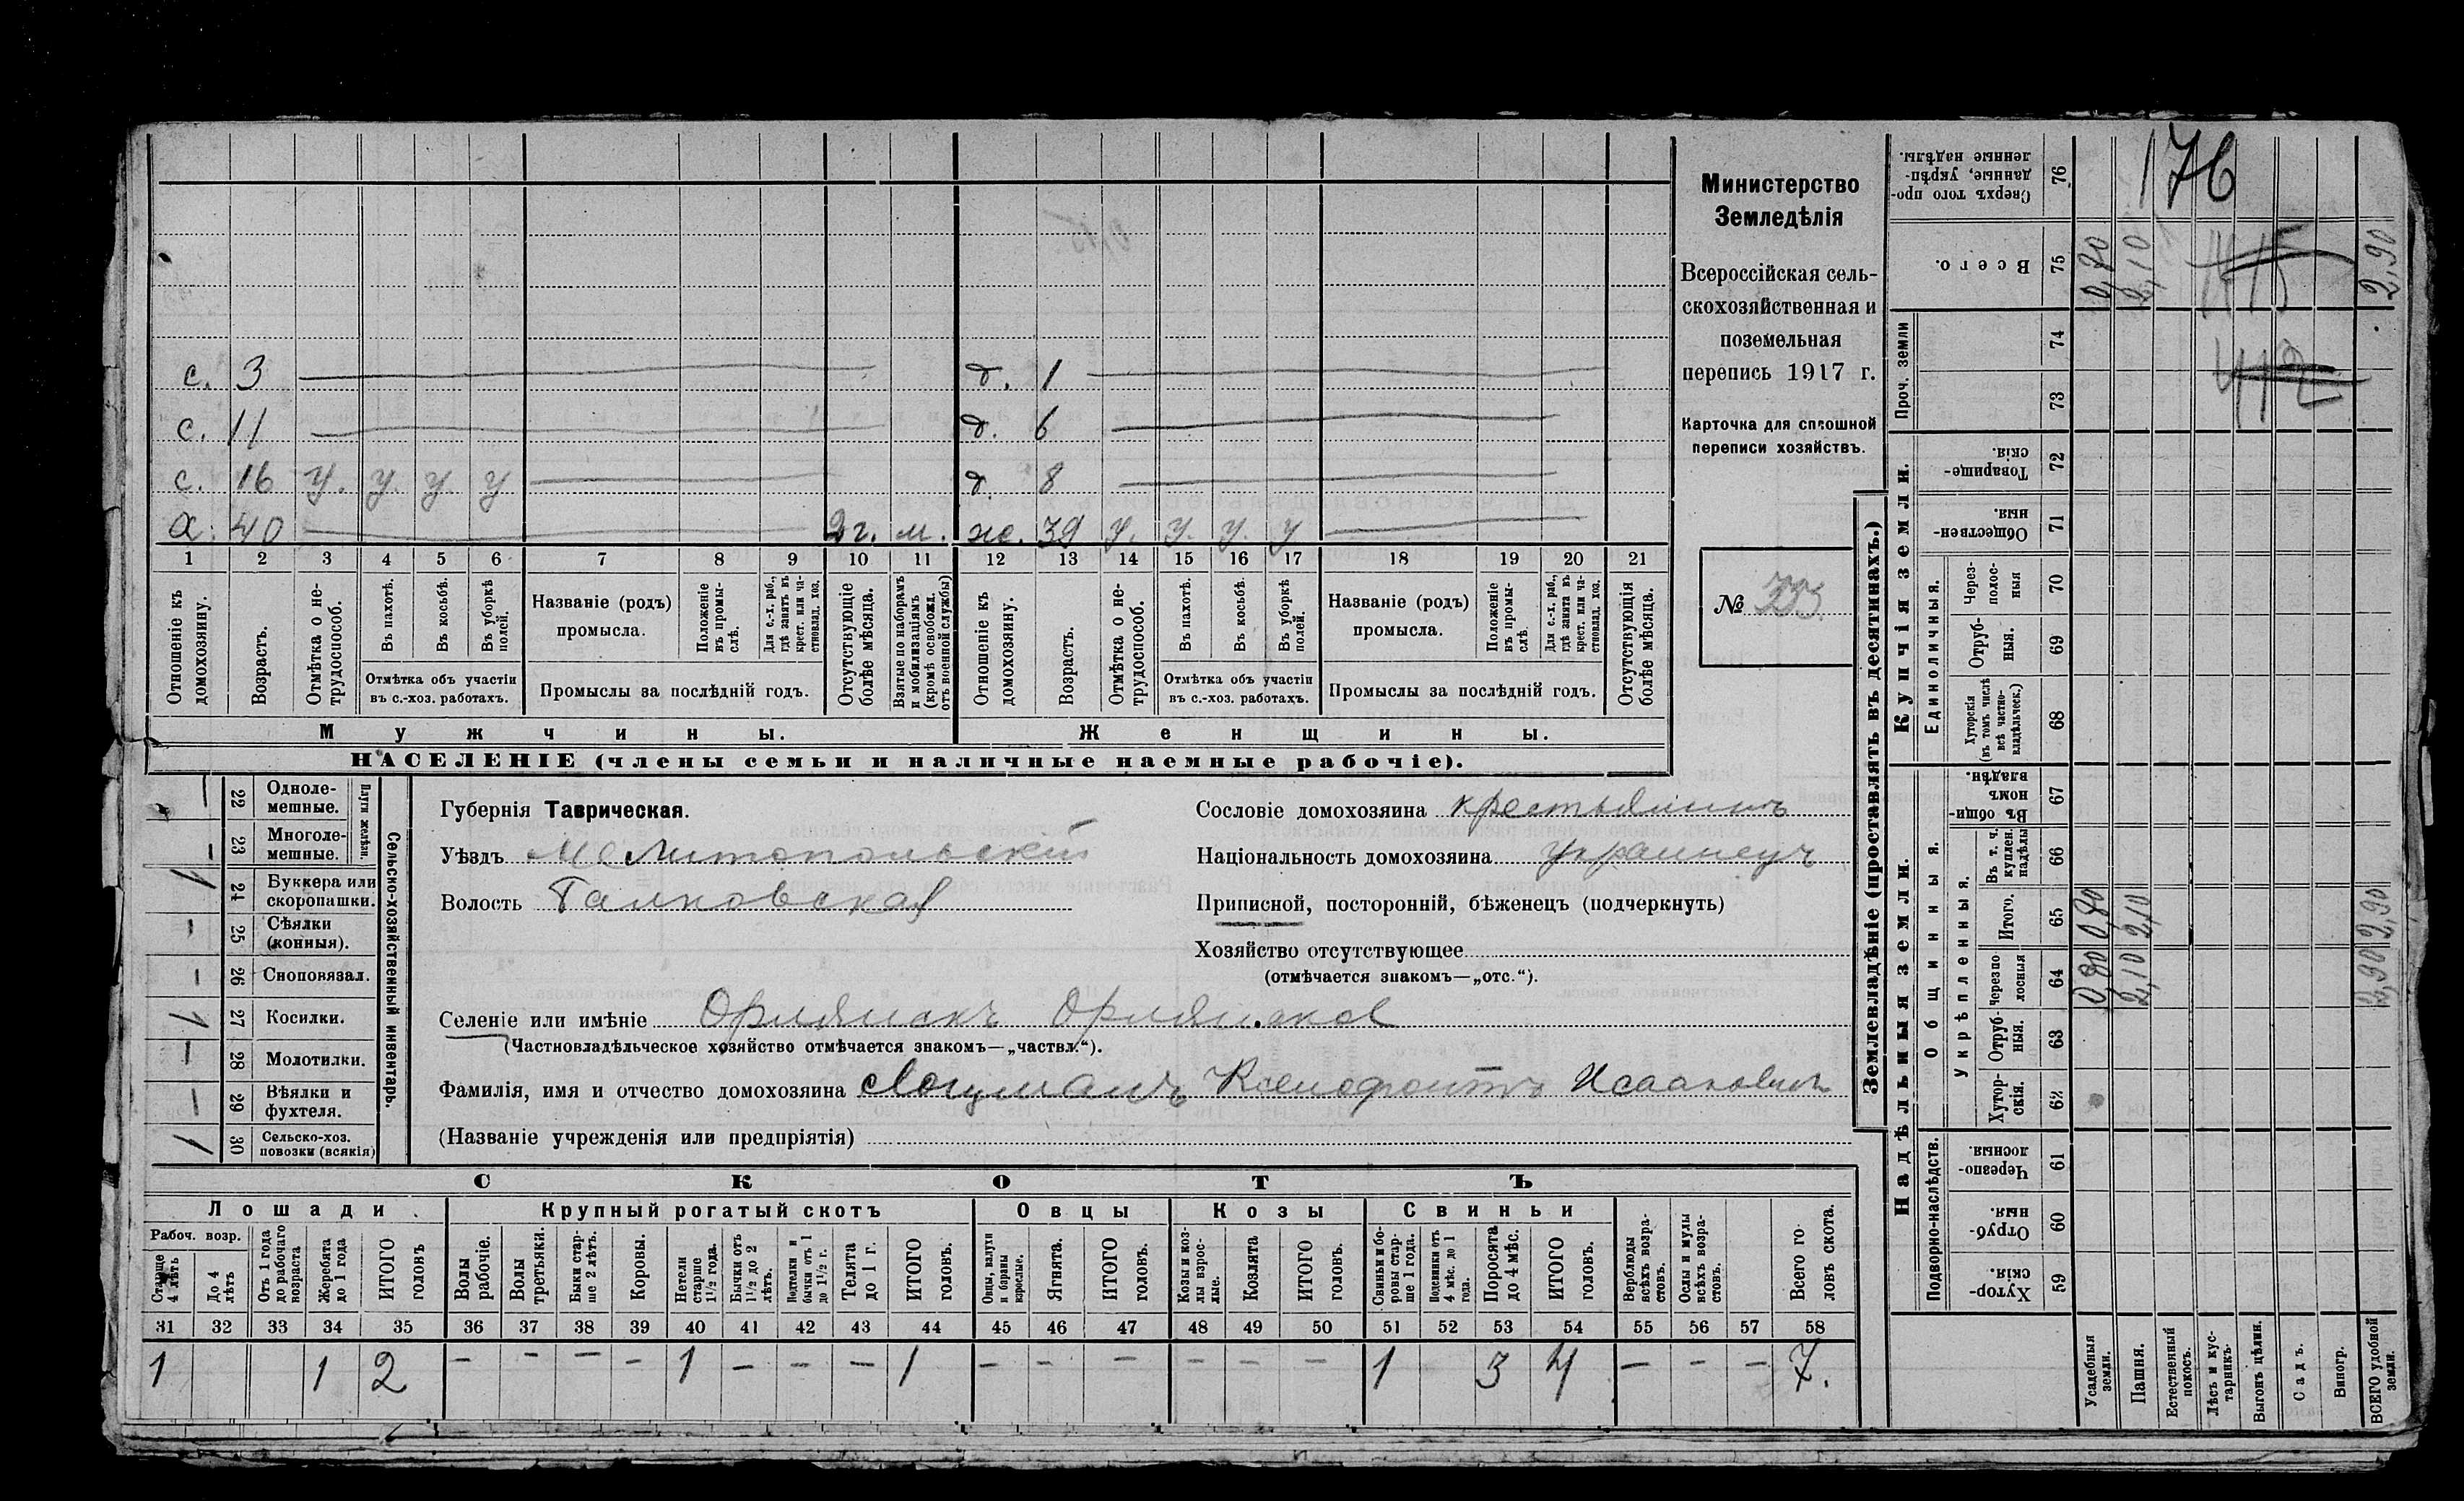 с. 3 д. 1
с. 11 д. 6
с. 16 у. у. у. у д. 8
х. 40 2 г. м. ж. 39 у. у. у. у
1 2 3 4 5 6 7 8 9 10 11 12 13 14 15 16 17 18 19 20 21
Отношеніе къ домохозяину.
Возрастъ.
Отмѣтка о нетрудоспособ.
Въ пахотѣ.
Въ косьбѣ.
Въ уборкѣ полей.
Отмѣтка объ участіи въ с.-хоз. работахъ.
Названіе (родъ) промысла.
Положеніе въ промыслѣ.
Для с.-х. раб., гдѣ занятъ въ крест. или частновлад. хоз.
Промыслы за послѣдній годъ.
Отсутствующіе болѣе мѣсяца.
Взятые по наборамъ и мобилизаціямъ (кромѣ освобожд. отъ военной службы)
Отношеніе къ домохозяину.
Возрастъ.
Отмѣтка о нетрудоспособ.
Въ пахотѣ.
Въ косьбѣ.
Въ уборкѣ полей.
Отмѣтка объ участіи въ с.-хоз. работахъ.
Названіе (родъ) промысла.
Положеніе въ промыслѣ.
Для с.-х. раб., гдѣ занята въ крест. или частновлад. хоз.
Промыслы за послѣдній годъ.
Отсутствующія болѣе мѣсяца.
Мужчины. Женщины.
НАСЕЛЕНІЕ (члены семьи и наличные наемные рабочіе).
Министерство
Земледѣлія
Всероссійская сель-
скохозяйственная и
поземельная
перепись 1917 г.
Карточка для сплошной
переписи хозяйствъ.
№
Сельско-хозяйственный инвентарь.
Плуги желѣзн.
— 22 Одноле-мешные.
— 23 Многоле-мешные.
1 24 Буккера или скоропашки.
— 25 Сѣялки (конныя).
— 26 Сноповязал.
1 27 Косилки.
— 28 Молотилки.
— 29 Вѣялки и фухтеля.
1 30 Сельско-хоз. повозки (всякія)
Губернія Таврическая.
Уѣздъ Мелитопольскій
Волость
Сословіе домохозяина крестьянинъ
Національность домохозяина украинецъ
Приписной, посторонній, бѣженецъ (подчеркнуть)
Хозяйство отсутствующее
(отмѣчается знакомъ—„отс.“).
Селеніе или имѣніе Орлянскъ
(Частновладѣльческое хозяйство отмѣчается знакомъ—„частвл.“).
Фамилія, имя и отчество домохозяина Лоцманъ Ксенофонтъ Исааковичъ
(Названіе учрежденія или предпріятія)
СКОТЪ
Лошади Крупный рогатый скотъ Овцы Козы Свиньи
Рабоч. возр.
Старше 4 лѣтъ
До 4 лѣтъ
Отъ 1 года до рабочаго возраста
Жеребята до 1 года
ИТОГО головъ
Волы рабочіе.
Волы третьяки.
Быки старше 2 лѣтъ.
Коровы.
Нетели старше 1½ года.
Бычки отъ 1½ до 2 лѣтъ.
Подтелки и бычки отъ 1 до 1½ г.
Телята до 1 г.
ИТОГО головъ.
Овцы, валухи и бараны взрослые.
Ягнята.
ИТОГО головъ.
Козы и козлы взрослые.
Козлята
ИТОГО головъ.
Свиньи и боровы старше 1 года.
Подсвинки отъ 4 мѣс. до 1 года.
Поросята до 4 мѣс.
ИТОГО головъ.
Верблюды всѣхъ возрастовъ.
Ослы и мулы всѣхъ возрастовъ.
Всего головъ скота.
31 32 33 34 35 36 37 38 39 40 41 42 43 44 45 46 47 48 49 50 51 52 53 54 55 56 57 58
1 1 2 — — — — 1 — — — 1 — — — — — — 1 3 4 — — — 7.
Землевладѣніе (проставлять въ десятинахъ.)
Надѣльныя земли. Купчія земли. Проч. земли
Подворно-наслѣдств.
Общинныя.
Укрѣпленныя.
Единоличныя.
Хуторскія. 59
Отрубныя. 60
Черезполосныя. 61
Хуторскія. 62
Отрубныя. 63
Черезполосныя 64 0,80 2,10 2,90
Итого. 65 0,80 2,10 2,90
Въ т. ч. куплен. надѣлы 66
Въ общинномъ владѣн. 67
Хуторскія (въ томъ числѣ всѣ частновладѣльческ.) 68
Отрубныя. 69
Черезполосныя 70
Общественныя. 71
Товарищескія. 72
73
74
Всего. 75 0,80 2,10 2,90
Сверхъ того проданные, укрѣпленные надѣлы. 76
176
1415
412
Усадебныя земли.
Пашня.
Естественный покосъ.
Лѣсъ и кустарникъ.
Выгонъ цѣлин.
Садъ.
Виногр.
ВСЕГО удобной земли.